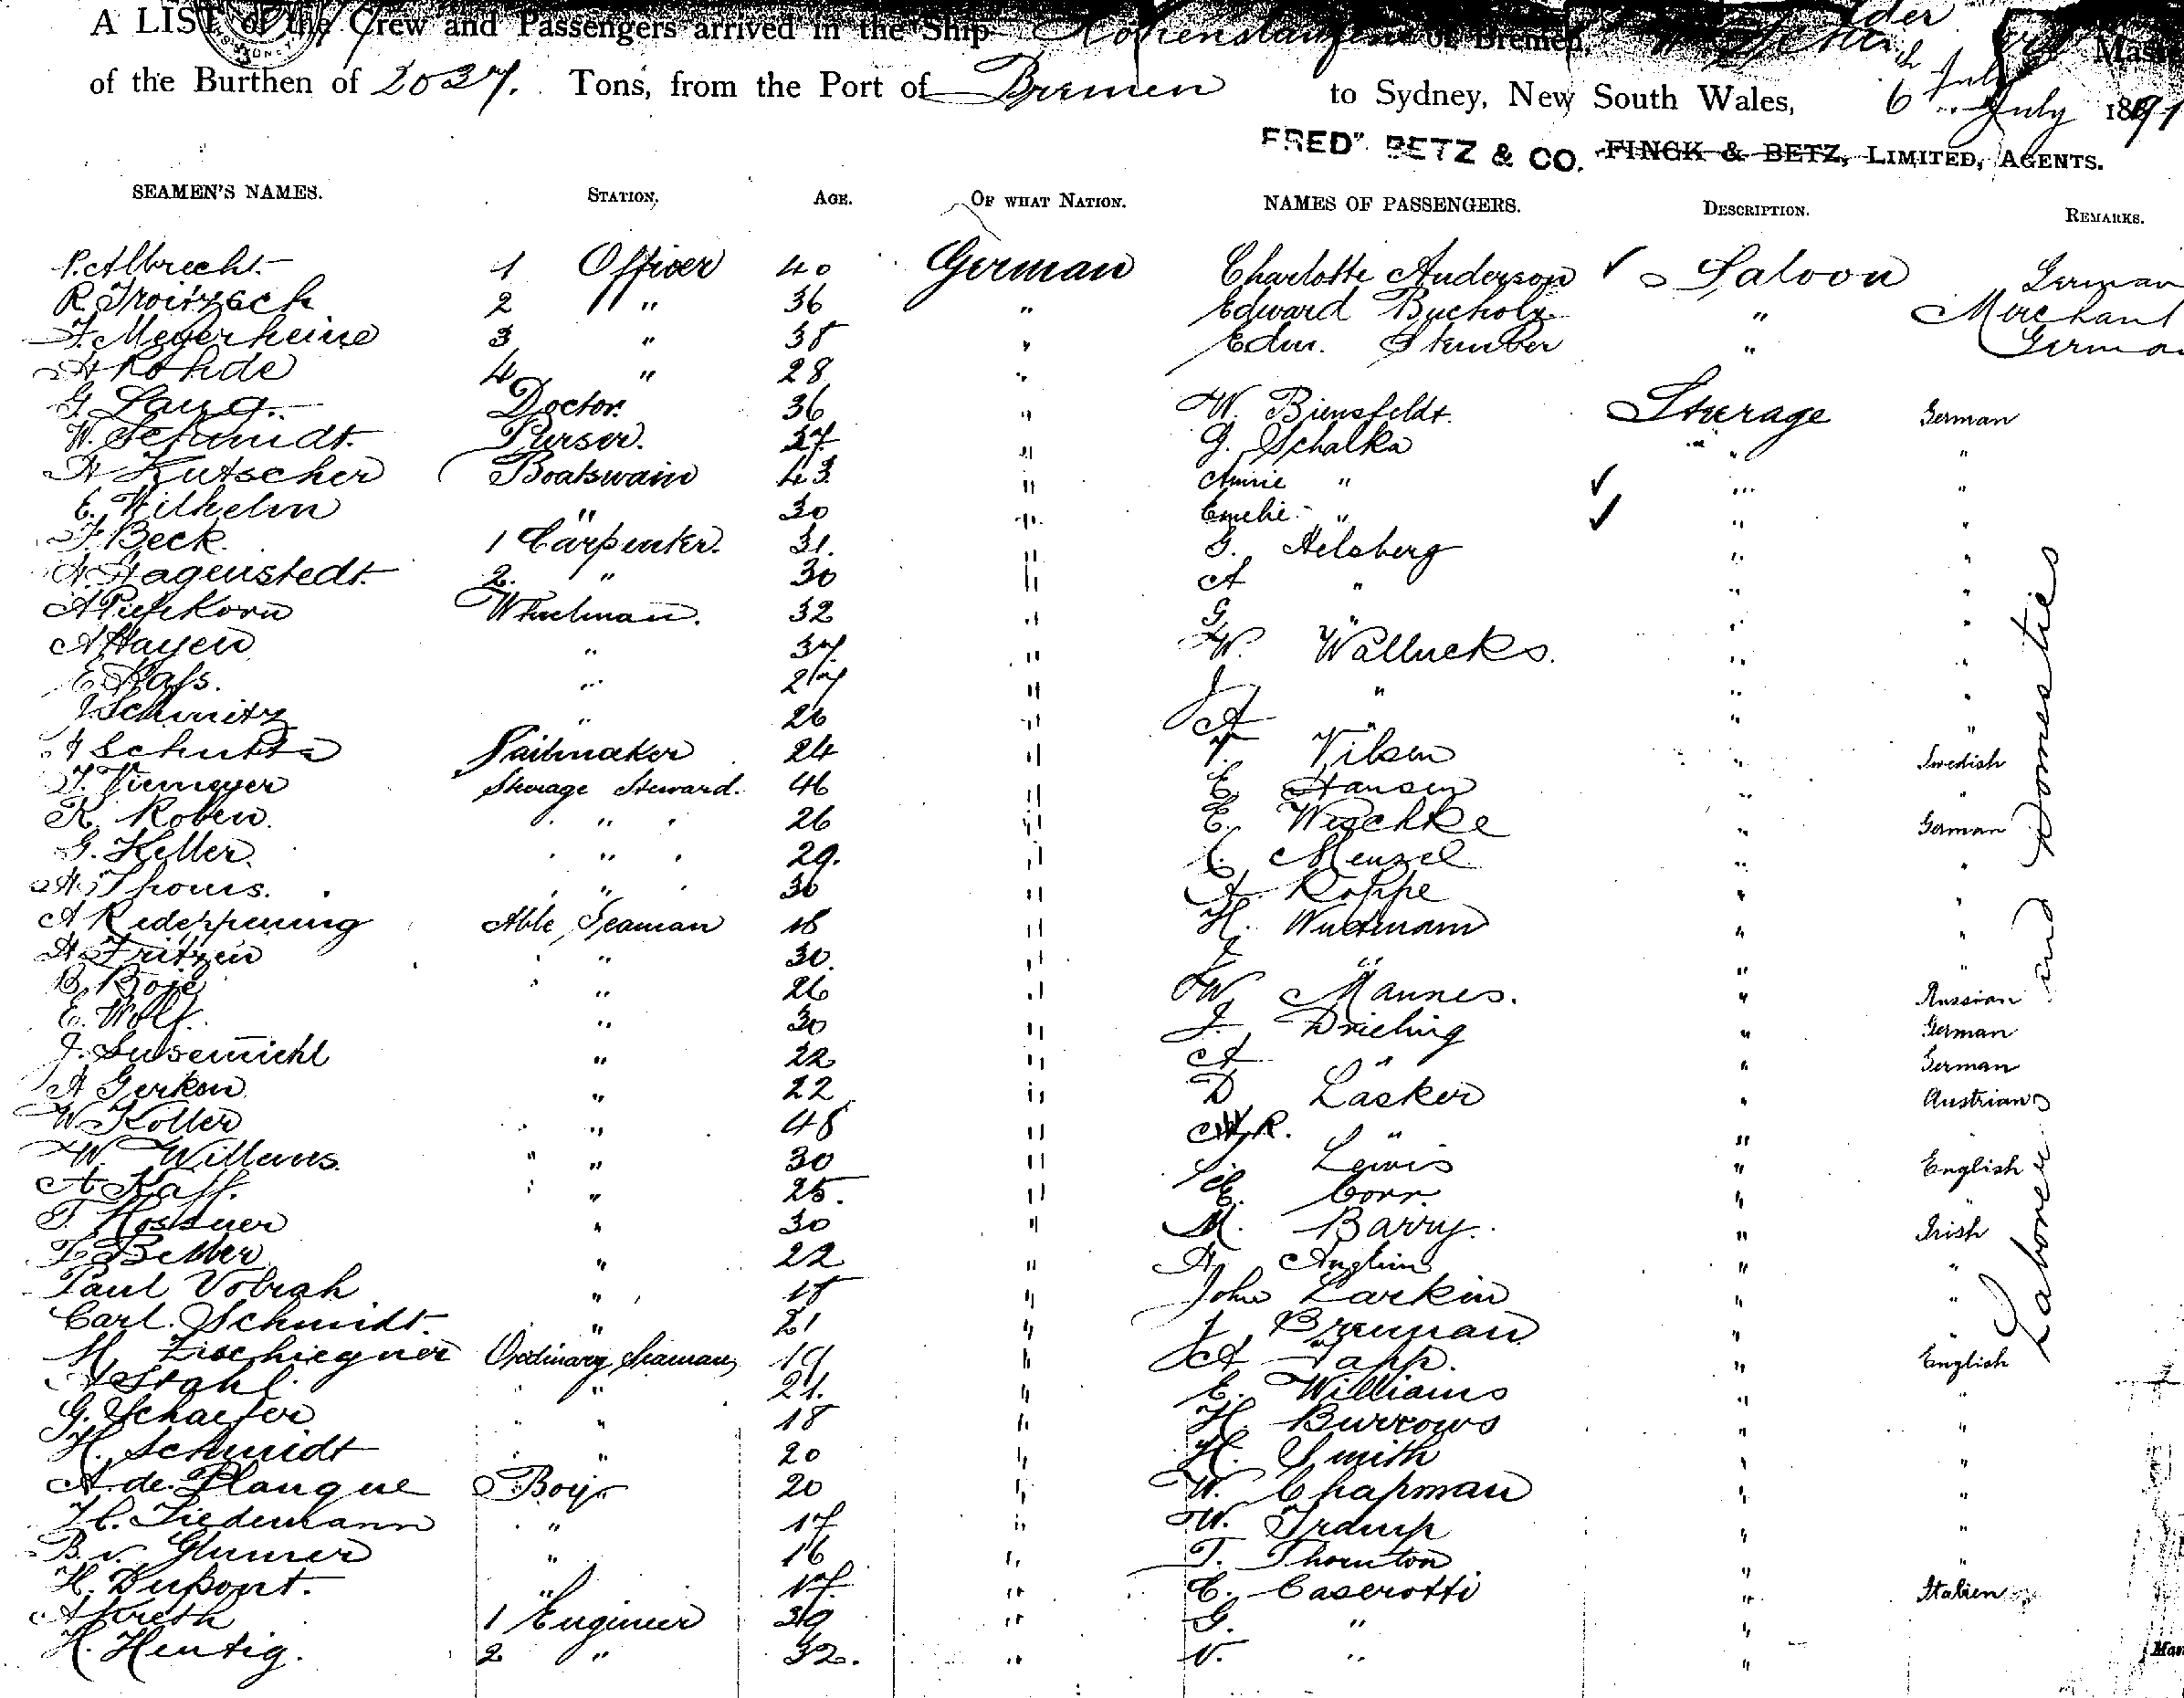 A LIST of the Crew and Passengers arrived in the Ship Hohenstaufen of Bremen, Master
of the Burthen of 2037. Tons, from the Port of Bremen to Sydney, New South Wales, 6 July 1891
FRED BETZ & CO. FINCK & BETZ, LIMITED, AGENTS.
SEAMEN'S NAMES. STATION. AGE. OF WHAT NATION. NAMES OF PASSENGERS. DESCRIPTION. REMARKS.
P. Albrecht 1 Officer 40 German Charlotte Anderson ✓ Saloon German
R. Troitzsch 2 " 36 " Edward Bucholz " Merchant
F. Meyerheine 3 " 38 " Edm. Stember " German
H Rohde 4 " 28 "
G. Lang. Doctor. 36 " W. Biensfeldt. Steerage German
W. Schmidt. Purser. 27 " G. Schalka " "
H Kutscher Boatswain 43 " Annie " ✓ " "
E. Wilhelm " 30 " Emelie " ✓ " "
F. Beck. 1 Carpenter. 31. " G. Helsberg " "
H. Hagenstedt. 2. " 30 " A " " "
A Piepkorn Wheelman. 32 " G. " " "
A Hayen " 37. " W. Wallucks. " "
E. Kass. " 27 " J " " "
J. Schmitz " 26 " A " " "
Schutte Sailmaker 24 " T. Nilsen " Swedish
J. Niemeyer Steerage Steward. 46 " E. Hansen " "
R. Roben. " " 26 " E. Weschke " German
G. Keller. " " 29. " C. Menzel " "
H. Thoms. " " 30 " A. Koppe " "
A Redeppenning Able Seaman 18 " H. Wiedmann " "
H. Fritzen " 30. " J " " "
B. Boje " 26 " W Mannes. " Russian
E. Wolf. " 30 " J. Drieling " German
J. Susemichl " 22 " A " " German
A Gerken " 22 " D Lasker " Austrian
W Koller " 48 " R. " "
W. Willems. " " 30 " Lewis " English
A. Kaff. " 25. " E. Corr. "
T. Hossner " 30 " M. Barry. " Irish
" 22 " A. Anglim " "
Paul Vobrah " 18 " John Larkin " "
Carl. Schmidt. " 21 " J. Brennan " "
M. Zischiegner Ordinary Seaman 19 " A Tapp. " English
A Stahl. " " 21. " E. Williams " "
G. Schaefer " " 18 " H. Burrows " "
H. Schmidt " " 20 " H. Smith " "
A. de. Planque Boy 20 " W. Chapman " "
H. C. Tiedemann " 17 " W. Tramp " "
B. v. Glumer " 16 " T. Thornton " "
H. Dupont. " 17 " C. Caserotti " Italien
A Kreth 1 Engineer 39 " G. " "
H. Hentig. 2 " 32. " V. " "
Laborers and Domesties